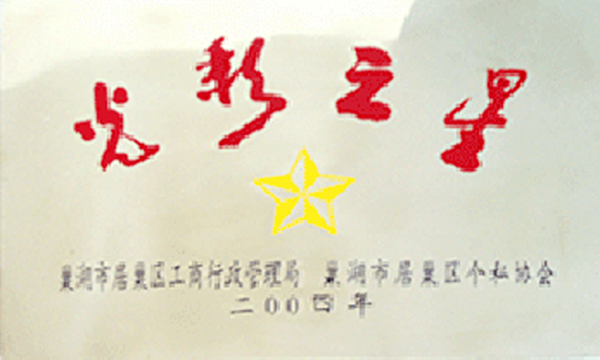 光彩之星
巢湖市居巢区工商行政管理局 巢湖市居巢区个私协会
二〇〇四年